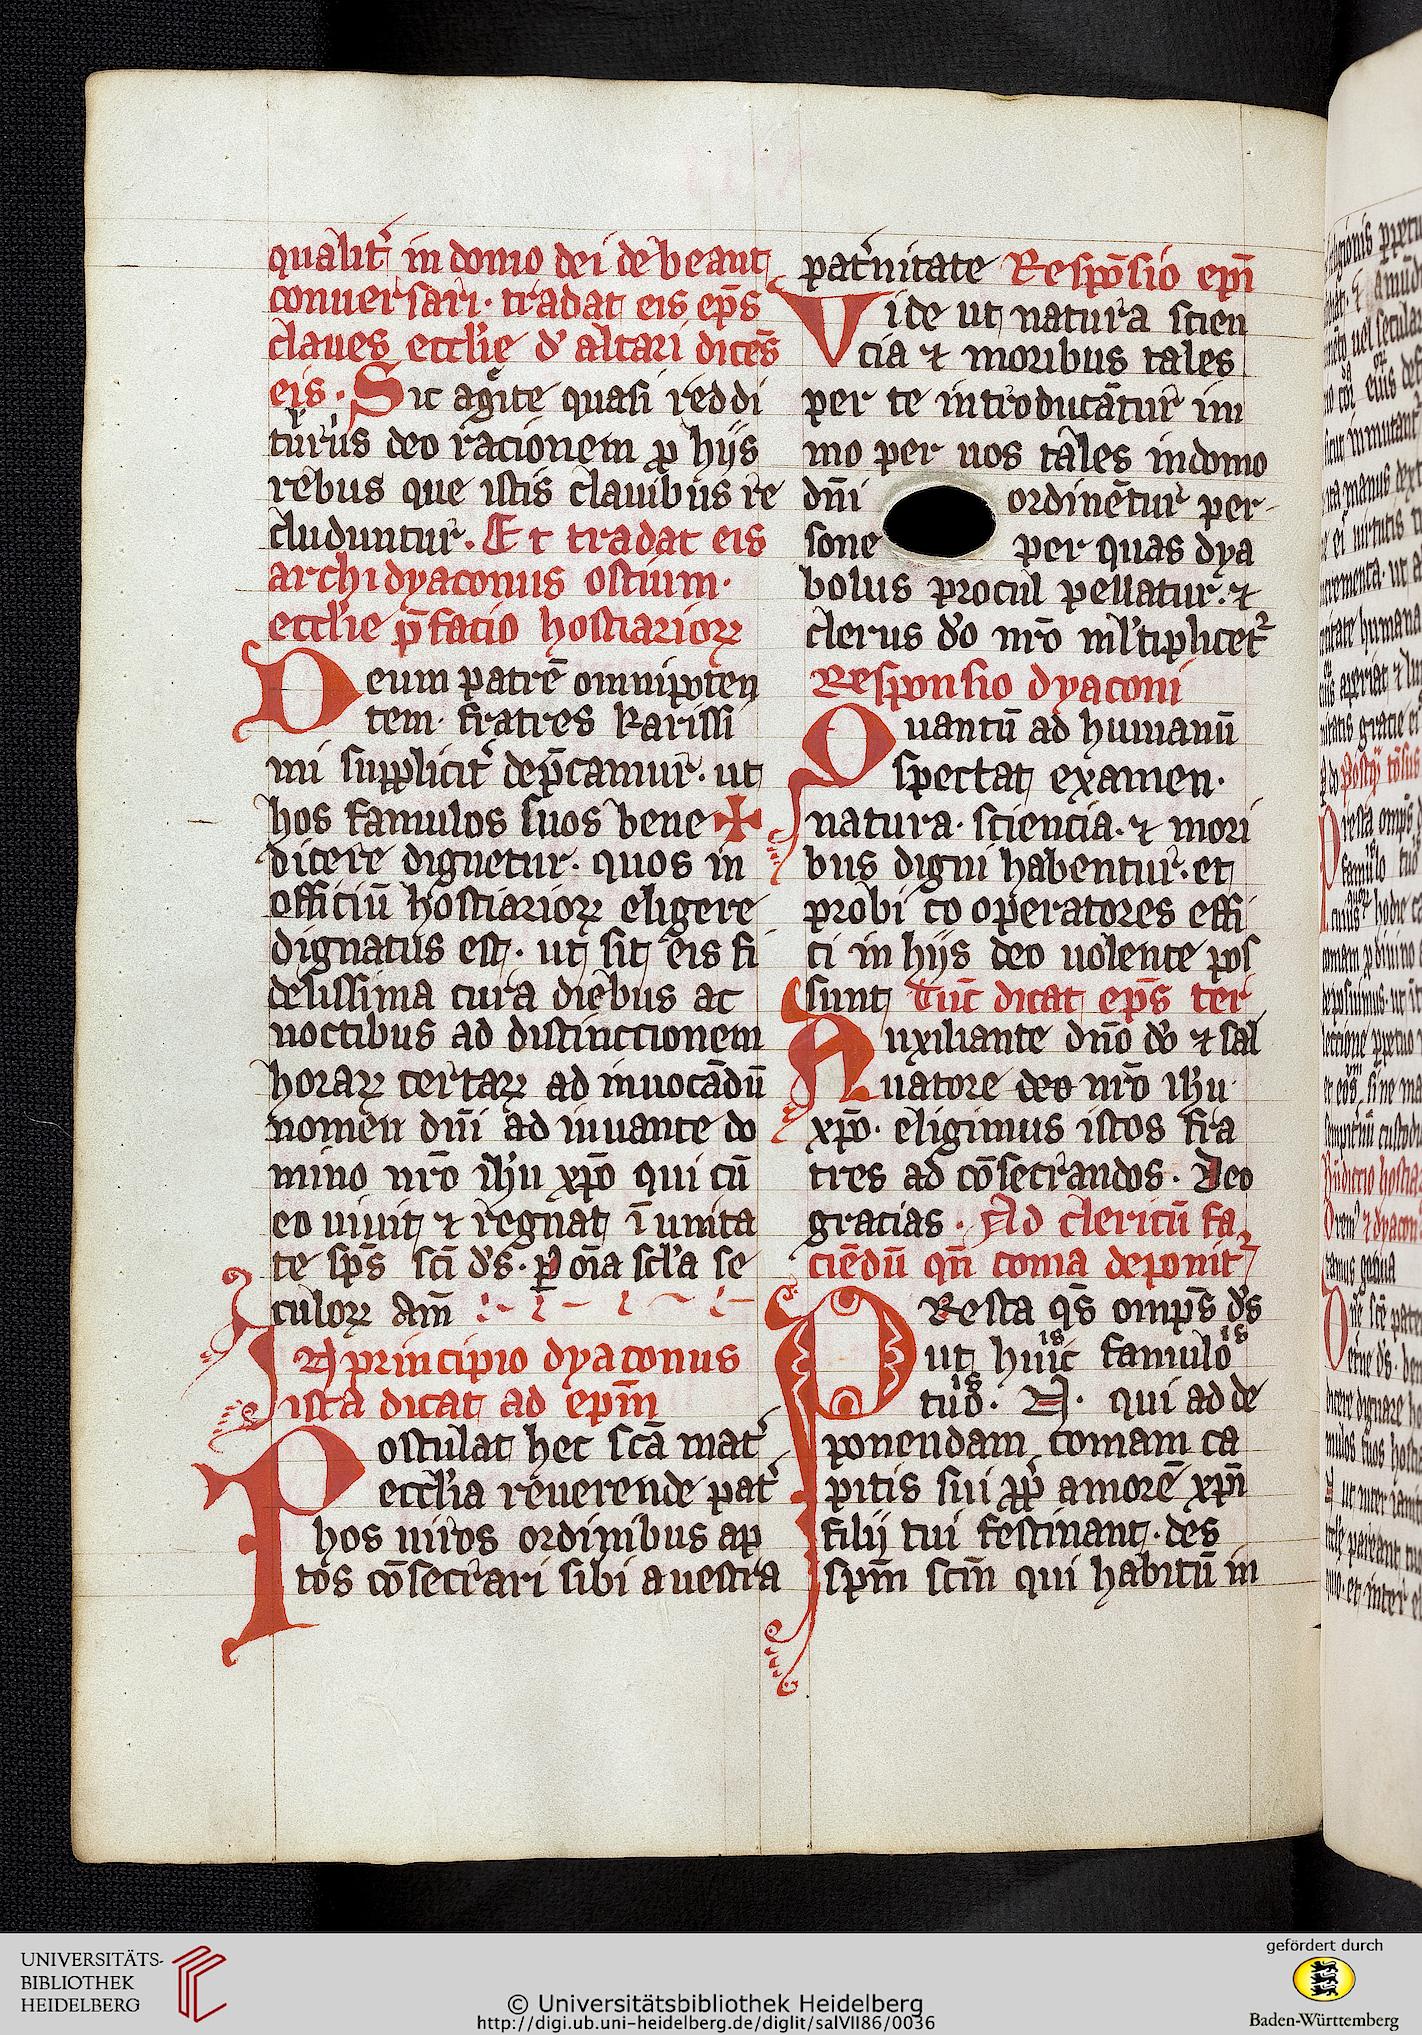 qualit᷑ in domo dei debeant
conuersari · tradat eis ep̄s
claues eccl'ie d' altari dicēs
eis · Sic agite quasi reddi
turus deo racionem ꝓ hijs
rebus que istis clauibus re
cluduntur. Et tradat eis
archidyaconus ostium·
eccl'ie p̄facio hostiarioꝝ
Deum patrē omnipoten
tem· fratres karissi
mi supplicit᷑ dep̄camur· ut
hos famulos suos bene ✠
dicere dignetur· quos in
officiū hostiarioꝝ eligere
dignatus est· ut sit eis fi
delissima cura diebus ac
noctibus ad distinctionem
horaꝝ certaꝝ ad inuocādū
nomen dn̄i ad iuuante do
mino nr̄o ih̄u xp̄o qui cū
eo uiuit ⁊ regnat ī unita
te sp̄s sc̄i d's· ꝑ oīa sc'la se
culoꝝ am̄
In principio dyaconus
ista dicat ad ep̄m
Postulat hec sc̄a mat᷑
eccl'ia reuerende pat᷑
hos uiros ordinibus ap
tos cōsecrari sibi a uestra
pat᷑nitate Respōsio ep̄i
Vide ut natura scien
cia ⁊ moribus tales
per te introducātur im
mo per uos tales in domo
dn̄i ordinētur per-
sone per quas dya
bolus procul pellatur· ⁊
clerus d'o nr̄o ml'tiplicet᷑
Responsio dyaconi
Quantū ad humanū
spectat examen·
natura· sciencia· ⁊ mori
bus digni habentur· et
probi co operatores effi
ci in hijs deo uolente pos
sunt Tūc dicat ep̄s ter
Auxiliante dn̄o d'o ⁊ sal
uatore deo nr̄o ih̄u·
xp̄o· eligimus istos fra
tres ad cōsecrandos· Deo
gracias · Ad clericū fa
ciēdū qn̄ coma deponit᷑
PResta q̄s omp̄s d's
ut huic is famulo is
tuo is· N· qui ad de
ponendam comam ca
pitis sui ꝓp̄ amorē xp̄i
filij tui festinant· des
sp̄m sc̄m qui habitū in
UNIVERSITÄTS-
BIBLIOTHEK
HEIDELBERG
© Universitätsbibliothek Heidelberg
http://digi.ub.uni-heidelberg.de/diglit/salVII86/0036
gefördert durch
Baden-Württemberg